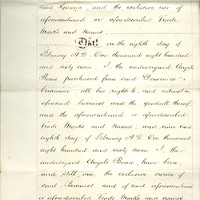 said Image, and the exclusive use of
aforementioned or aforedescribed Trade
Marks and Names;
That, on the eighth day of
February A.D. One thousand eight hundred
and sixty seven I the undersigned Angelo
Brea purchased from said Domenico
Orcanico, all his right to and interest in
aforesaid business and the goodwill thereof,
and the aforementioned or aforedescribed
Trade Marks and Names; and since said
eighth day of February A.D. One thousand
eight hundred and sixty seven I, the
undersigned Angelo Brea, have been
and still am the exclusive owner of
said Business and of said aforementioned
or aforedescribed Trade Marks and names